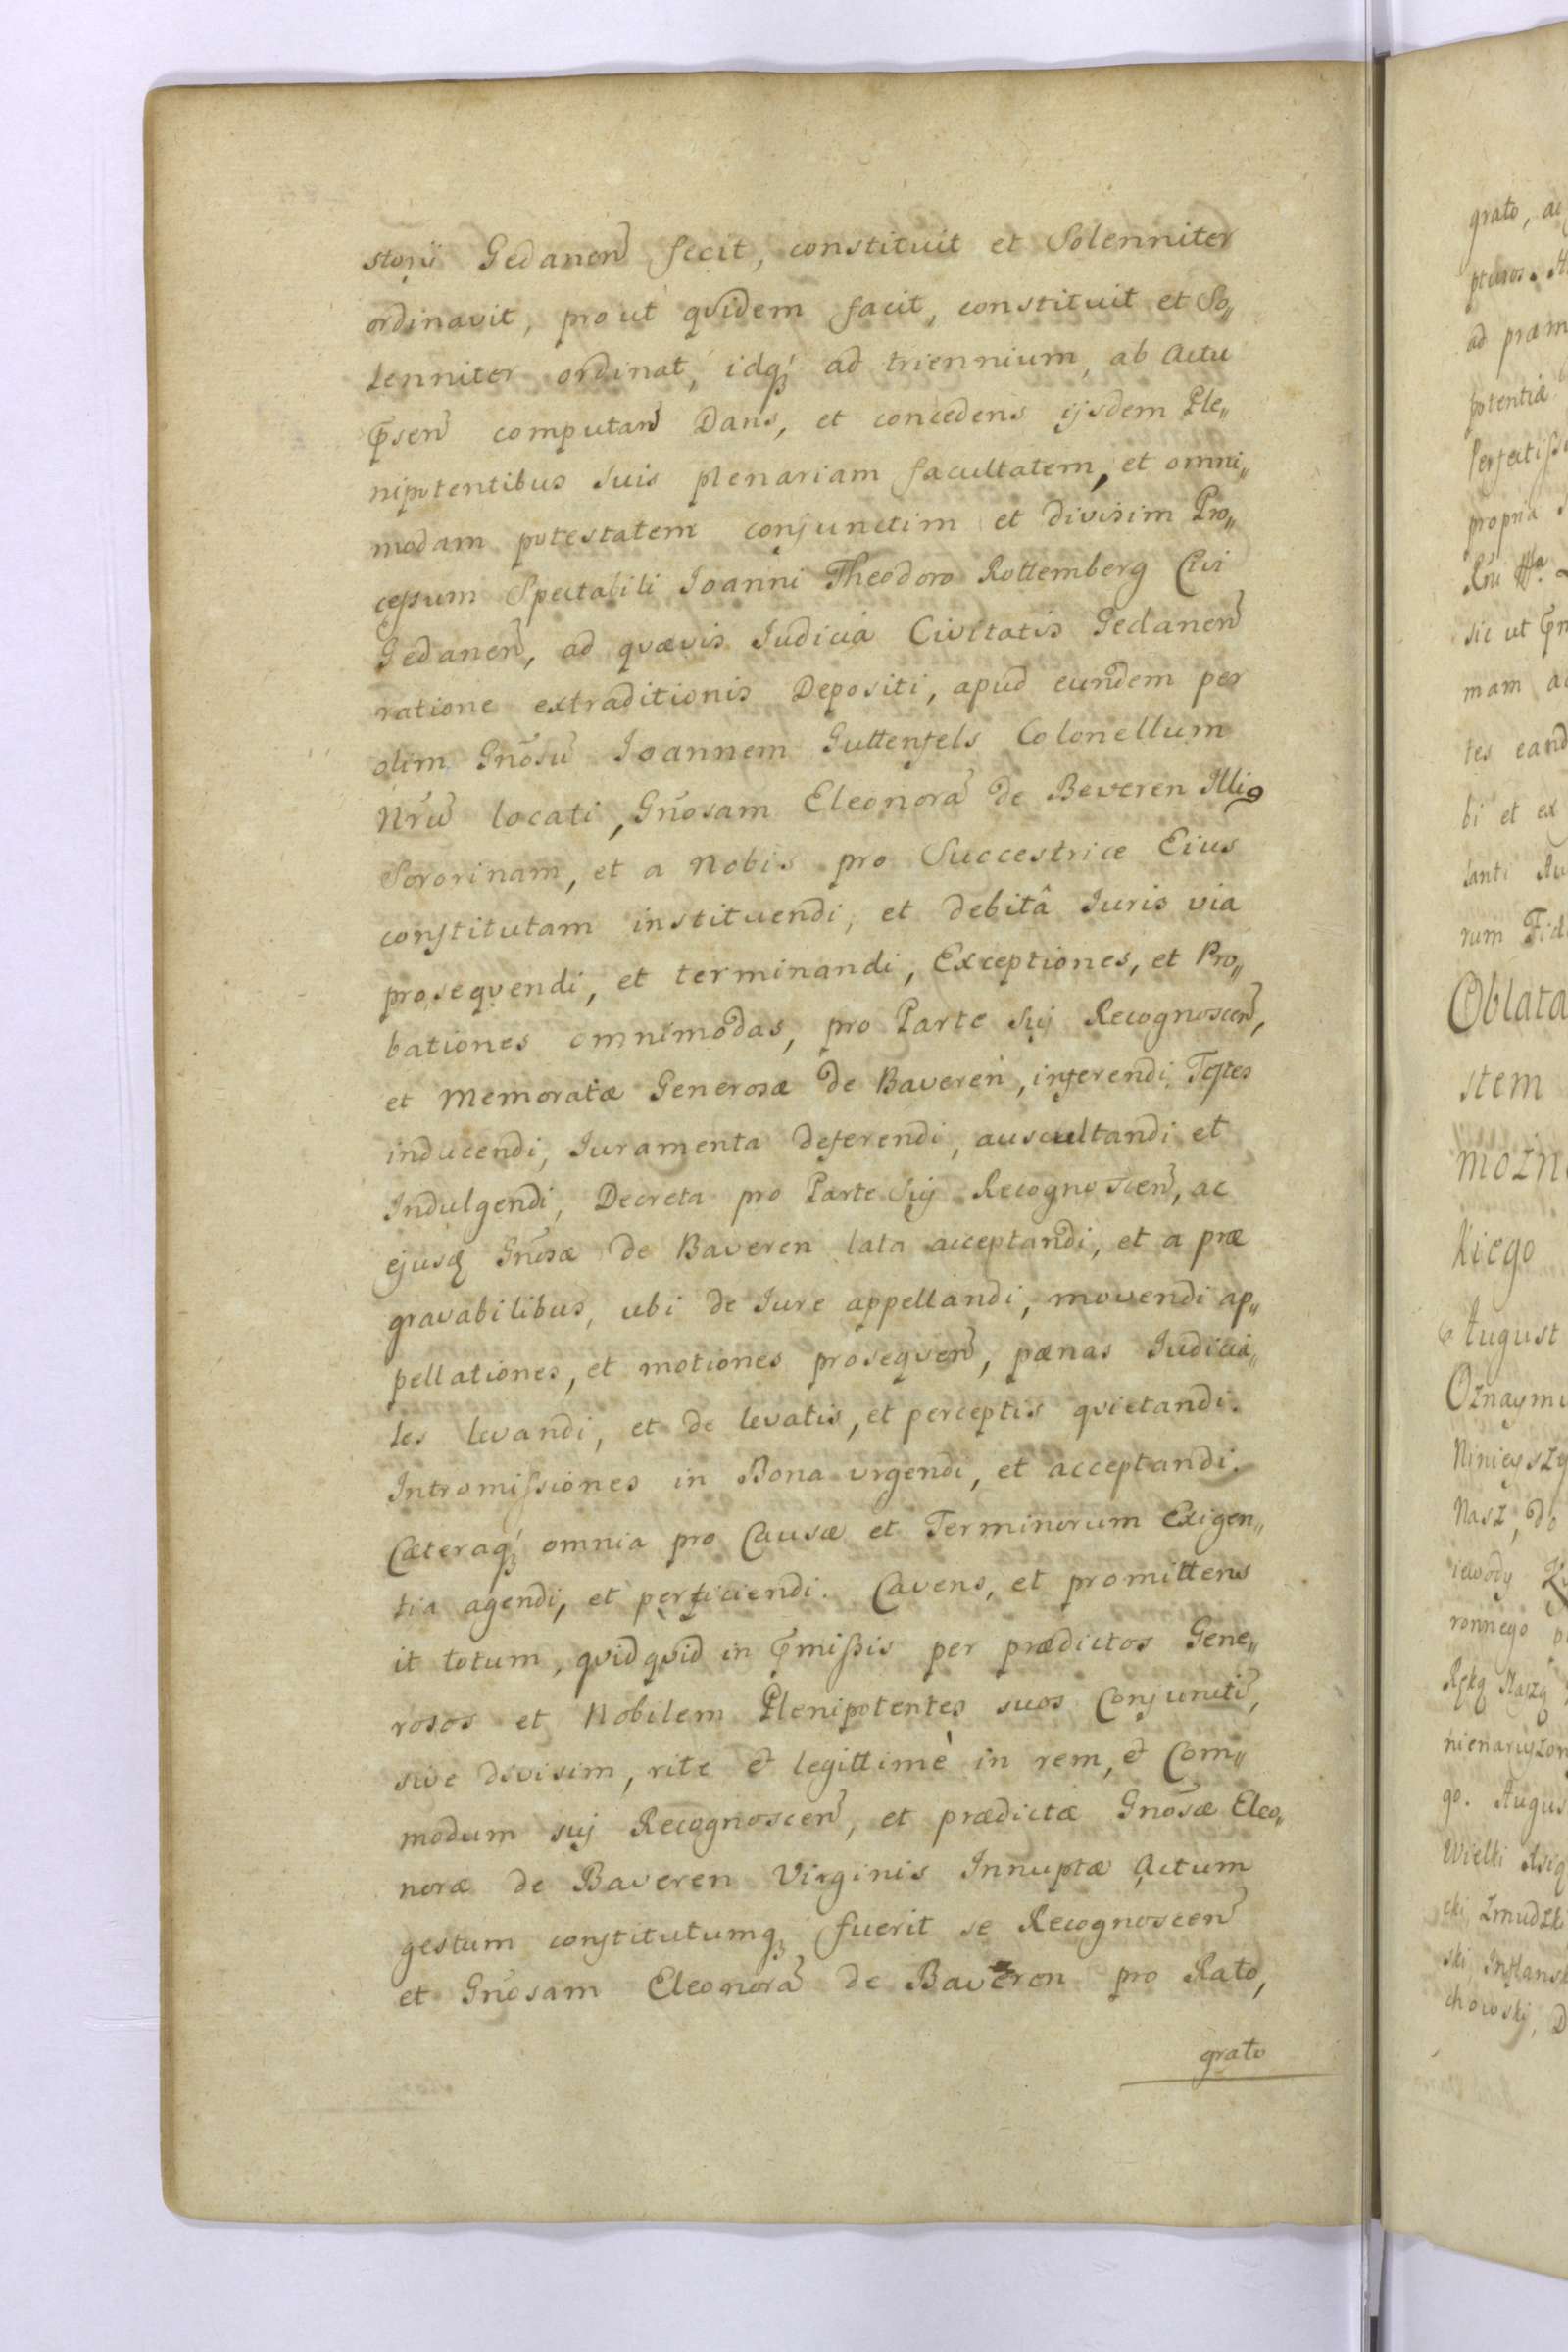 storii Gedanen̄ fecit, constituit et Solenniter
ordinavit, pro ut quidem facit, constituit et So„
lenniter ordinat, idq́; ad triennium, ab Actu
p̄sen̄ computan̄ Dans, et concedens ijsdem Ple„
nipotentibus Suis plenariam facultatem, et omni„
modam potestatem conjunctim et divisim Pro„
cessum Spectabili Joanni Theodoro Rottemberg Civi
Gedanen̄, ad quævis Judicia Civitatis Gedanen̄
ratione extraditionis Depositi, apud eundem per
olim Gn̄osū Joannem Guttenfels Colonellum
Nr̄ū locati, Gn̄osam Eleonorā de Beveren Illiꝯ
Sororinam, et a Nobis pro Succestrice Eius
constitutam instituendi, et debitâ Juris via
prosequendi, et terminandi, Exceptiones, et Pro„
bationes omnimodas, pro Parte Suj Recognoscen̄,
et Memoratæ Generosæ de Baveren, inferendi, Testes
inducendi, Juramenta deferendi, auscultandi et
Indulgendi, Decreta pro Parte Suj Recognoscen̄, ac
ejusd Gn̄osæ de Baveren lata acceptandi, et a præ
gravabilibus, ubi de Jure appellandi, movendi ap„
pellationes, et motiones prosequen̄, pænas Judicia„
les levandi, et de levatis, et perceptis quietandi.
Intromissiones in Bona urgendi, et acceptandi.
Cæteraq́; omnia pro Causæ et Terminorum Exigen„
tia agendi, et perficiendi. Cavens, et promittens
it totum, quidquid in p̄missis per prædictos Gene„
rosos et Nobilem Plenipotentes suos Conjunctī,
sive divisim, rite et legittimè in rem, et Com„
modum suj Recognoscen̄, et prædictæ Gn̄osæ Eleo„
noræ de Baveren Virginis Innuptæ Actum
gestum constitutumq; fuerit se Recognoscen̄
et Gn̄osam Eleonorā de Baveren pro Rato,
grato
grato, ac
pturos.
ad præm
potentiæ
Perfectiss
propria
sic ut p̄m
mam ac
tes eand
bi et ex
santi Au
rum Fid
Oblata
stem
mozn
kiego
August
Oznaymu
Ninieysz
Nasz, do
iewody
ronnego
Ręką Naszą
nienaruszon
go. Augus
Wielki Xiąż
cki, Zmudzk
ski, Inflansk
chowski,